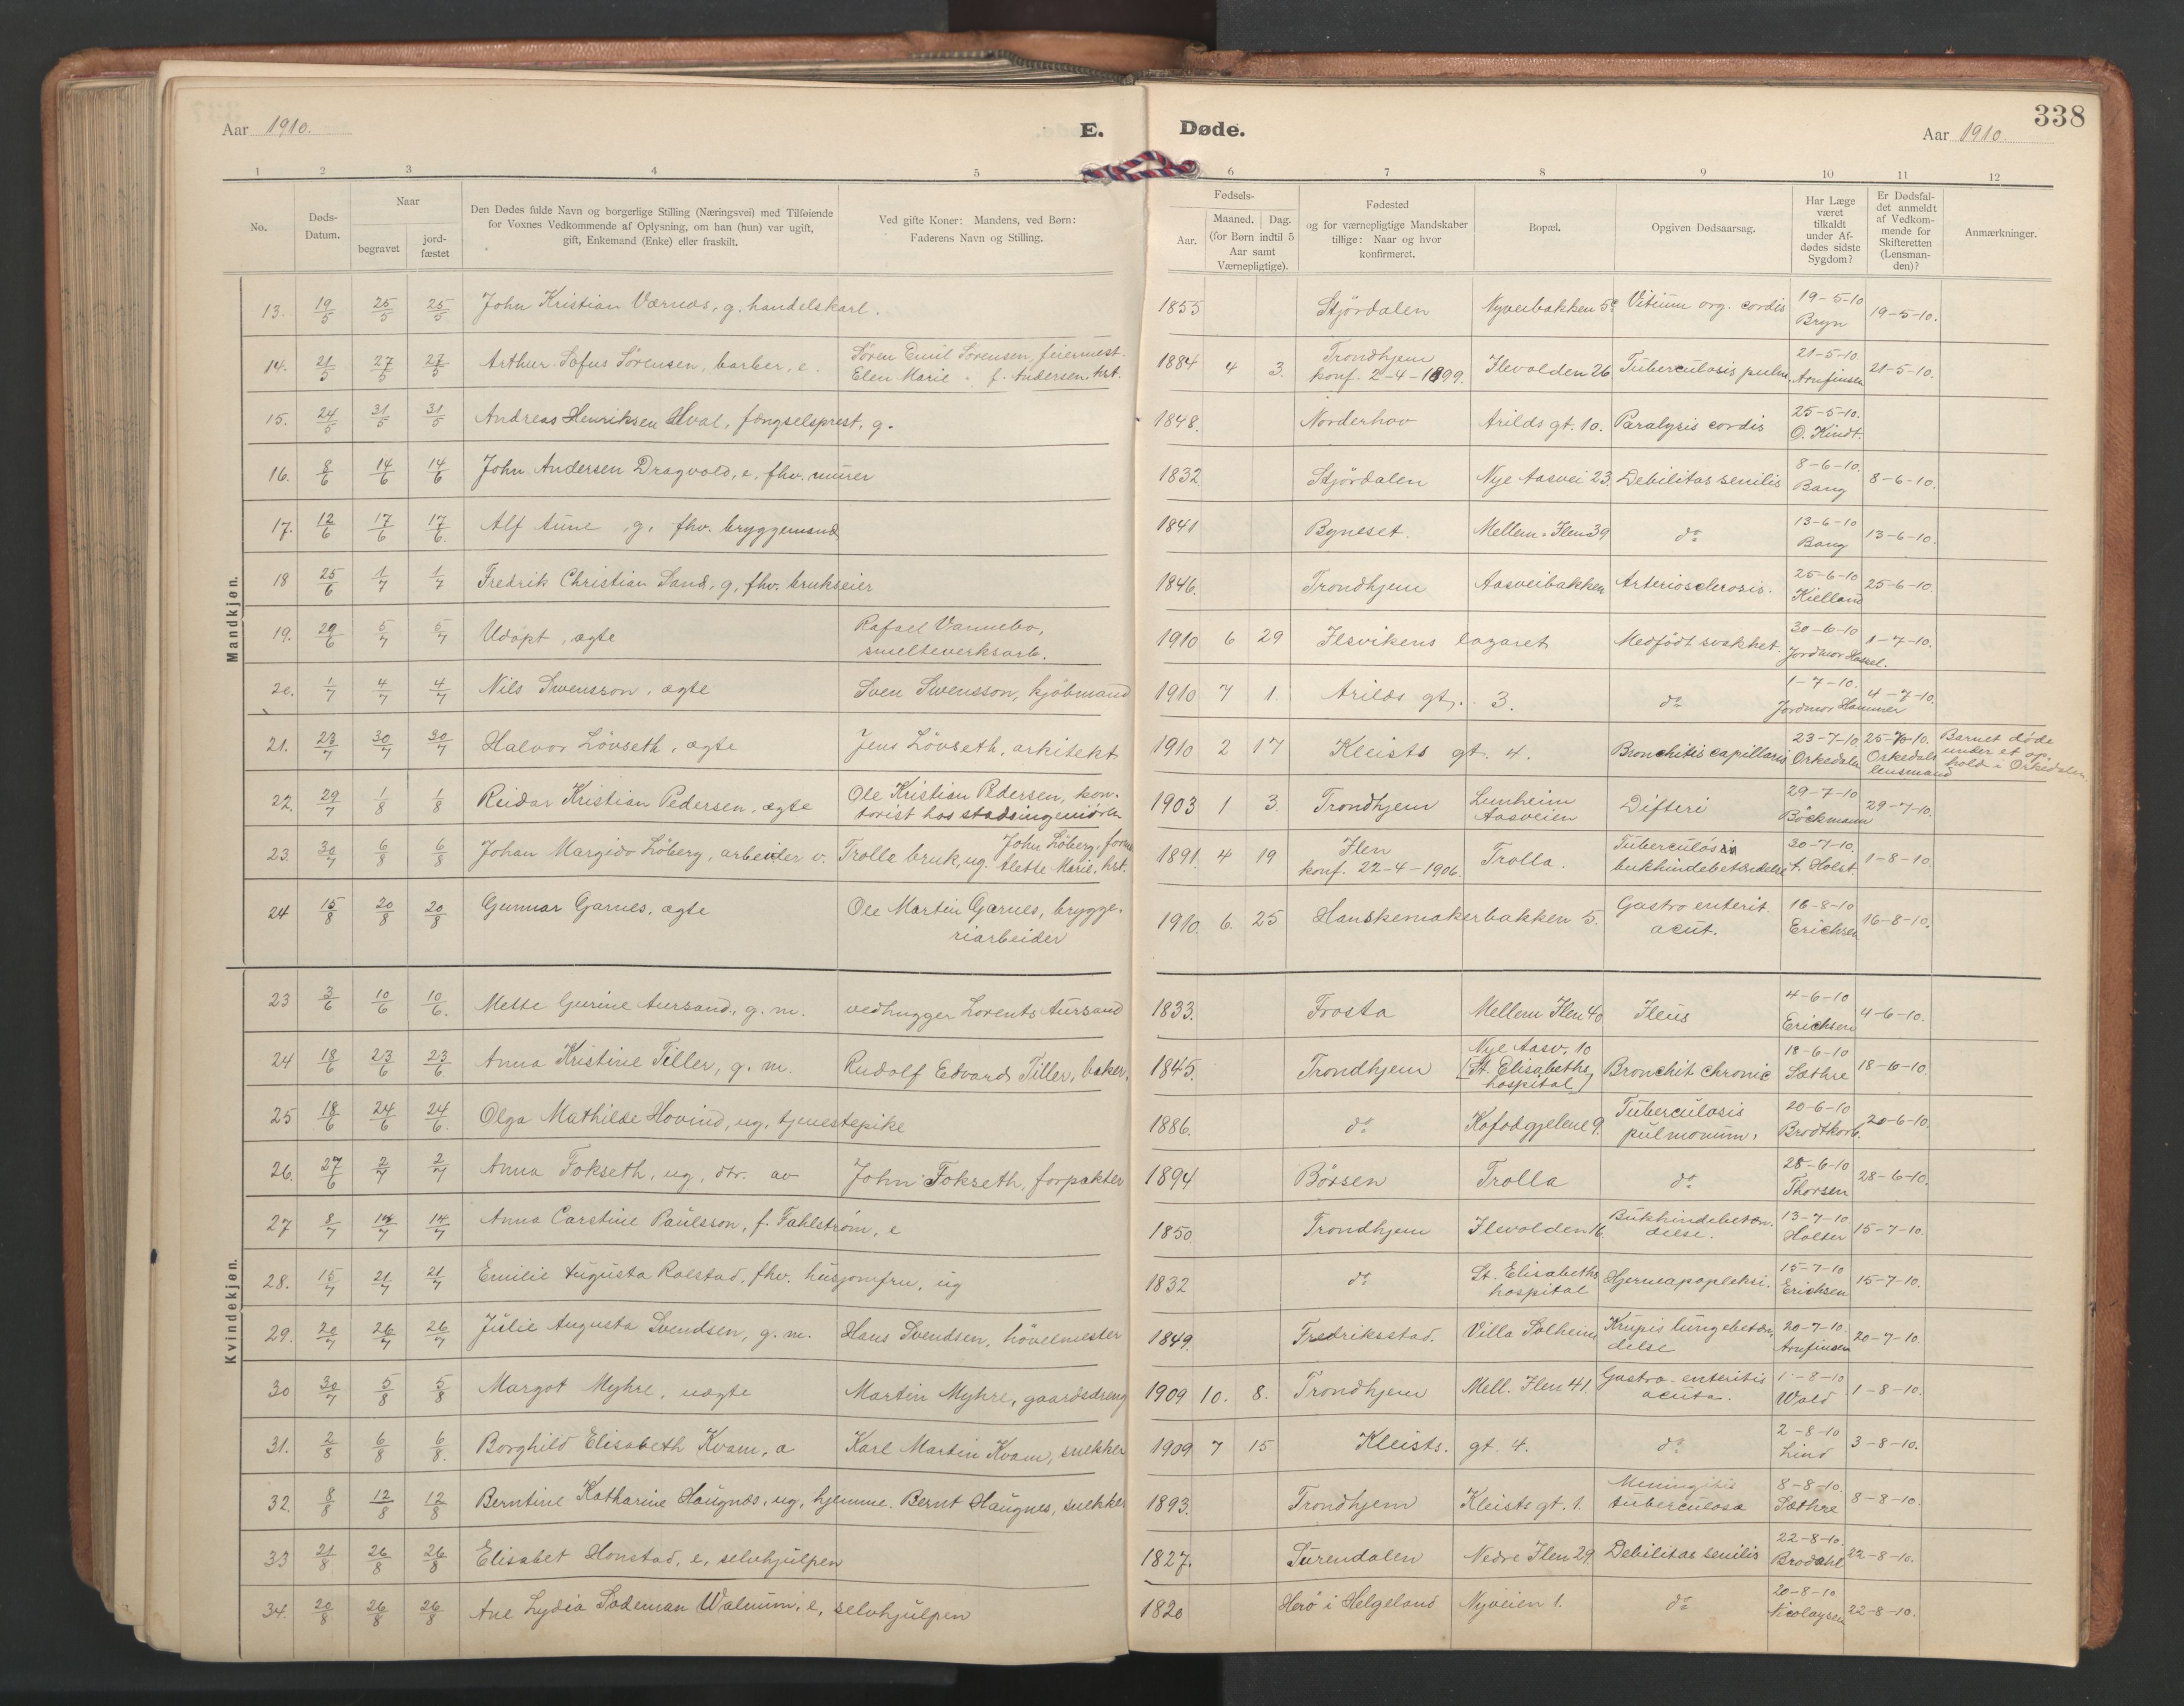 338
Aar 1910. E. Døde. Aar 1910.
1 2 3 4 5 6 7 8 9 10 11 12
No. Døds-Datum. Naar begravet jordfæstet
Den Dødes fulde Navn og borgerlige Stilling (Næringsvei) med Tilføiende
for Voxnes Vedkommende af Oplysning, om han (hun) var ugift,
gift, Enkemand (Enke) eller fraskilt.
Ved gifte Koner: Mandens, ved Børn:
Faderens Navn og Stilling.
Fødsels-
Aar. Maaned. Dag.
(for Børn indtil 5
Aar samt
Værnepligtige).
Fødested
og for værnepligtige Mandskaber
tillige: Naar og hvor
konfirmeret.
Bopæl.
Opgiven Dødsaarsag.
Har Læge
været
tilkaldt
under Af-
dødes sidste
Sygdom?
Er Dødsfal-
det anmeldt
af Vedkom-
mende for
Skifteretten
(Lensman-
den)?
Anmærkninger.
Mandkjøn.
13. 19/5 25/5 25/5 John Kristian Værnæs, g. handelskarl. 1855 Stjördalen Nyveibakken 5c Vitium org. cordis 19-5-10 Bryn 19-5-10.
14. 21/5 27/5 27/5 Arthur Sofus Sörensen, barber, e. Sören Emil Sörensen, feiermest. Elen Marie f. Andersen, hst. 1884 4 3. Trondhjem konf. 2-4-1899. Ilevolden 26 Tuberculosis pulm. 21-5-10. Arnfinsen 21-5-10.
15. 24/5 31/5 31/5 Andreas Henriksen Hval, fængselsprest, g. 1848. Norderhov Arilds gt. 10. Paralysis cordis 25-5-10. O. Kindt.
16. 8/6 14/6 14/6 John Andersen Dragvold, e, fhv. murer 1832. Stjördalen Nye Aasvei 23. Debilitas senilis 8-6-10. Bang 8-6-10.
17. 12/6 17/6 17/6. Alf Aune, g, fhv. bryggemand 1841 Byneset. Mellem-Ilen 39 do 13-6-10 Bang 13-6-10.
18 25/6 1/7 1/7 Fredrik Christian Sand, g, fhv. brukseier 1846. Trondhjem Aasveibakken Arteriosclerosis. 25-6-10 Kielland 25-6-10.
19. 29/6 5/7 5/7 Udøpt, ægte Rafael Vannebo, smelteverksarb. 1910 6 29 Ilsvikens lazaret Medfödt svakhet. 30-6-10 Jordmor Hassel. 1-7-10.
20. 1/7 4/7 4/7 Nils Swensson, ægte Sven Swensson, kjöbmand 1910 7 1. Arilds gt. 3. do 1-7-10. Jordmor Hammer 4-7-10.
21. 23/7 30/7 30/7 Halvor Lövseth, ægte Jens Lövseth, arkitekt 1910 2 17 Kleists gt. 4. Bronchitis capillaris 23-7-10 Orkedalen 25-7-10. Orkedals lensmand Barnet döde under et op hold i Orkedalen.
22. 29/7 1/8 1/8 Reidar Kristian Pedersen, ægte Ole Kristian Pedersen, kontorist hos stadsingeniören 1903 1 3. Trondhjem Lunheim Aasveien Difteri 29-7-10 Böckmann 29-7-10.
23. 30/7 6/8 6/8 Johan Margido Löberg, arbeider v. Trolle bruk, ug. John Löberg, Alette Marie, hst. 1891 4 19 Ilen konf. 22-4-1906. Trolla. Tuberculösis bukhindebetændelse 30-7-10. t. Holst 1-8-10.
24 15/8 20/8 20/8 Gunnar Garnes, ægte Ole Martin Garnes, bryggeriarbeider 1910. 6. 25 Hanskemakerbakken 5. Gastro enterit. acut. 16-8-10 Erichsen 16-8-10.
Kvindekjøn.
23 3/6 10/6 10/6. Mette Gurine Aursand, g. m. vedhugger Lorents Aursand 1833. Frosta Mellem Ilen 40 Ileus 4-6-10 Erichsen 4-6-10.
24 18/6 23/6 23/6. Anna Kristine Tiller, g. m. Rudolf Edvard Tiller, baker. 1845. Trondhjem Nye Aasv. 10 [St. Elisabeths hospital] Bronchit chronic 18-6-10 Sæthre 18-6-10.
25 18/6 24/6 24/6. Olga Mathilde Hovind, ug, tjenestepike 1886. do Kofodgjelene 9. Tuberculosis pulmonum. 20-6-10 Brodtkorb. 20-6-10.
26. 27/6 2/7 2/7 Anna Fokseth, ug, dtr. av John Fokseth, forpakter 1894 Börsen Trolla do 28-6-10 Thorsen 28-6-10.
27 8/7 14/7 14/7 Anna Carstine Paulsson, f. Fahlström, e 1850 Trondhjem Ilevolden 16 Bukhindebetændelse. 13-7-10 Halter 15-7-10.
28. 15/7 21/7 21/7 Emilie Augusta Rolstad, fhv. husjomfru, ug 1832 do St. Elisabeths hospital Hjerneapopleksi. 15-7-10 Erichsen 15-7-10.
29. 20/7 26/7 26/7 Julie Augusta Svendsen, g. m. Hans Svendsen, hövelmester 1849. Fredriksstad. Villa Solheim Krupis lungebetændelse 20-7-10. Arnfinsen 20-7-10.
30 30/7 5/8 5/8 Margot Myhre, uægte Martin Myhre, gaardsdreng 1909 10. 8. Trondhjem Mell. Ilen 41. Gastro-enteritis acuta. 1-8-10 Wald 1-8-10.
31. 2/8 6/8 6/8. Borghild Elisabeth Kvam, æ Karl Martin Kvam, snekker 1909 7 15 Kleists. gt. 4. do 2-8-10 Lind 3-8-10.
32. 8/8 12/8 12/8 Berntine Katharine Haugnes, ug, hjemme. Bernt Haugnes, snekker 1893. Trondhjem Kleists gt. 1. Meningitis tuberculosa 8-8-10. Sæthre 8-8-10.
33 21/8 26/8 26/8 Elisabet Honstad, e, selvhjulpen 1827. Surendalen Nedre Ilen 29. Debilitas senilis 22-8-10. Brodahl 22-8-10.
34. 20/8 26/8 26/8 Ane Lydia Sodeman Walnum, e, selvhjulpen 1820 Herö i Helgeland Nyveien 1. do 20-8-10. Nicolaysen 22-8-10.